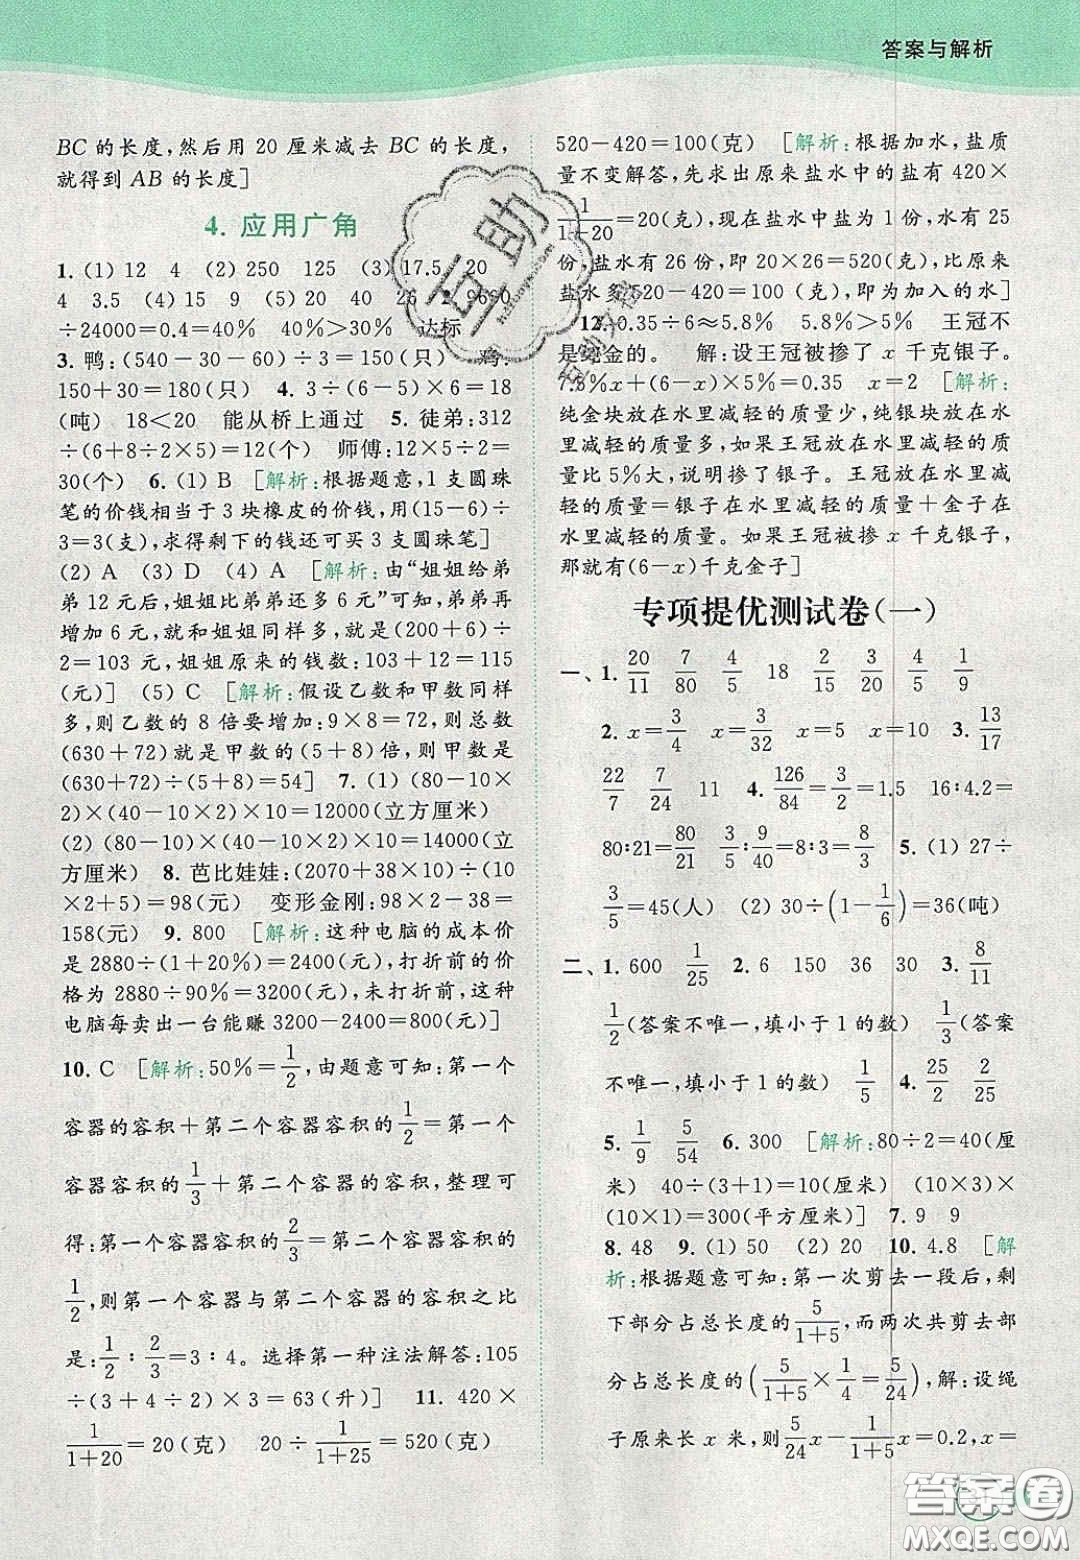 答案与解析
BC 的长度,然后用 20 厘米减去 BC 的长度,
就得到 AB 的长度]
4. 应用广角
1. (1) 12 4 (2) 250 125 (3) 17.5 20
4 3.5 (4) 15 9 (5) 20 40 25 2. 9600
÷24000=0.4=40% 40%>30% 达标
3. 鸭:(540-30-60)÷3=150(只) 鸡:
150+30=180(只) 4. 3÷(6-5)×6=18
(吨) 18<20 能从桥上通过 5. 徒弟:312
÷(6+8÷2×5)=12(个) 师傅:12×5÷2=
30(个) 6. (1) B [解析:根据题意,1 支圆珠
笔的价钱相当于 3 块橡皮的价钱,用(15-6)÷
3=3(支),求得剩下的钱还可买 3 支圆珠笔]
(2) A (3) D (4) A [解析:由“姐姐给弟
弟 12 元后,姐姐比弟弟多 6 元”可知,弟弟再
增加 6 元,就和姐姐同样多,就是(200+6)÷
2=103 元,姐姐原来的钱数:103+12=115
(元)] (5) C [解析:假设乙数和甲数同样
多,则乙数的 8 倍要增加:9×8=72,则总数
(630+72)就是甲数的(5+8)倍,则甲数是
(630+72)÷(5+8)=54] 7. (1) (80-10×
2)×(40-10×2)×10=12000(立方厘米)
(2) (80-10)×(40-10×2)×10=14000(立
方厘米) 8. 芭比娃娃:(2070+38×10)÷(10
×2+5)=98(元) 变形金刚:98×2-38=
158(元) 9. 800 [解析:这种电脑的成本价
是 2880÷(1+20%)=2400(元),打折前的价
格为 2880÷90%=3200(元),未打折前,这种
电脑每卖出一台能赚 3200-2400=800(元)]
10. C [解析:50%=1/2,由题意可知:第一个
容器的容积+第二个容器容积的1/2=第一个
容器容积的1/3+第二个容器的容积,整理可
得:第一个容器容积的2/3=第二个容器容积的
1/2,则第一个容器与第二个容器的容积之比
是:1/2∶2/3=3∶4。选择第一种注法解答:105
÷(3+4÷2)×3=63(升)] 11. 420×
1/(1+20)=20(克) 20÷1/(1+25)=520(克)
520-420=100(克) [解析:根据加水,盐质
量不变解答,先求出原来盐水中的盐有 420×
1/(1+20)=20(克),现在盐水中盐为 1 份,水有 25
份,盐水有 26 份,即 20×26=520(克),比原来
盐水多 520-420=100 (克),即为加入的水]
12. 0.35÷6≈5.8% 5.8%>5% 王冠不
是纯金的。 解:设王冠被掺了 x 千克银子。
7.5%x+(6-x)×5%=0.35 x=2 [解析:
纯金块放在水里减轻的质量少,纯银块放在水
里减轻的质量多,如果王冠放在水里减轻的质
量比 5%大,说明掺了银子。王冠放在水里减
轻的质量=银子在水里减轻的质量+金子在
水里减轻的质量。如果王冠被掺 x 千克银子,
那就有(6-x)千克金子]
专项提优测试卷(一)
一、1. 20/11 7/80 4/5 18 2/15 3/20 4/5 1/9
2. x=3/4 x=3/32 x=5 x=10 3. 13/17
22/7 7/24 11 4. 126/84=3/2=1.5 16∶4.2=
80∶21=80/21 3/5∶9/40=8∶3=8/3 5. (1) 27÷
3/5=45(人) (2) 30÷(1-1/6)=36(吨)
二、1. 600 1/25 2. 6 150 36 30 3. 8/11
1/2(答案不唯一,填小于 1 的数) 1/3(答案
不唯一,填小于 1 的数) 1/5 4. 25/2 2/25
5. 1/9 5/54 6. 300 [解析:80÷2=40(厘
米) 40÷(3+1)=10(厘米) (10×3)×
(10×1)=300(平方厘米)] 7. 9 9
8. 48 9. (1) 50 (2) 20 10. 4.8 [解
析:根据题意可知:第一次剪去一段后,剩
下部分占总长度的5/(1+5),而两次共剪去部
分占总长度的(5/(1+5)×1/4=5/24),解:设绳
子原来长 x 米,则5/24x-1/(1+5)x=0.2,x=
答案圈
MXQE.COM